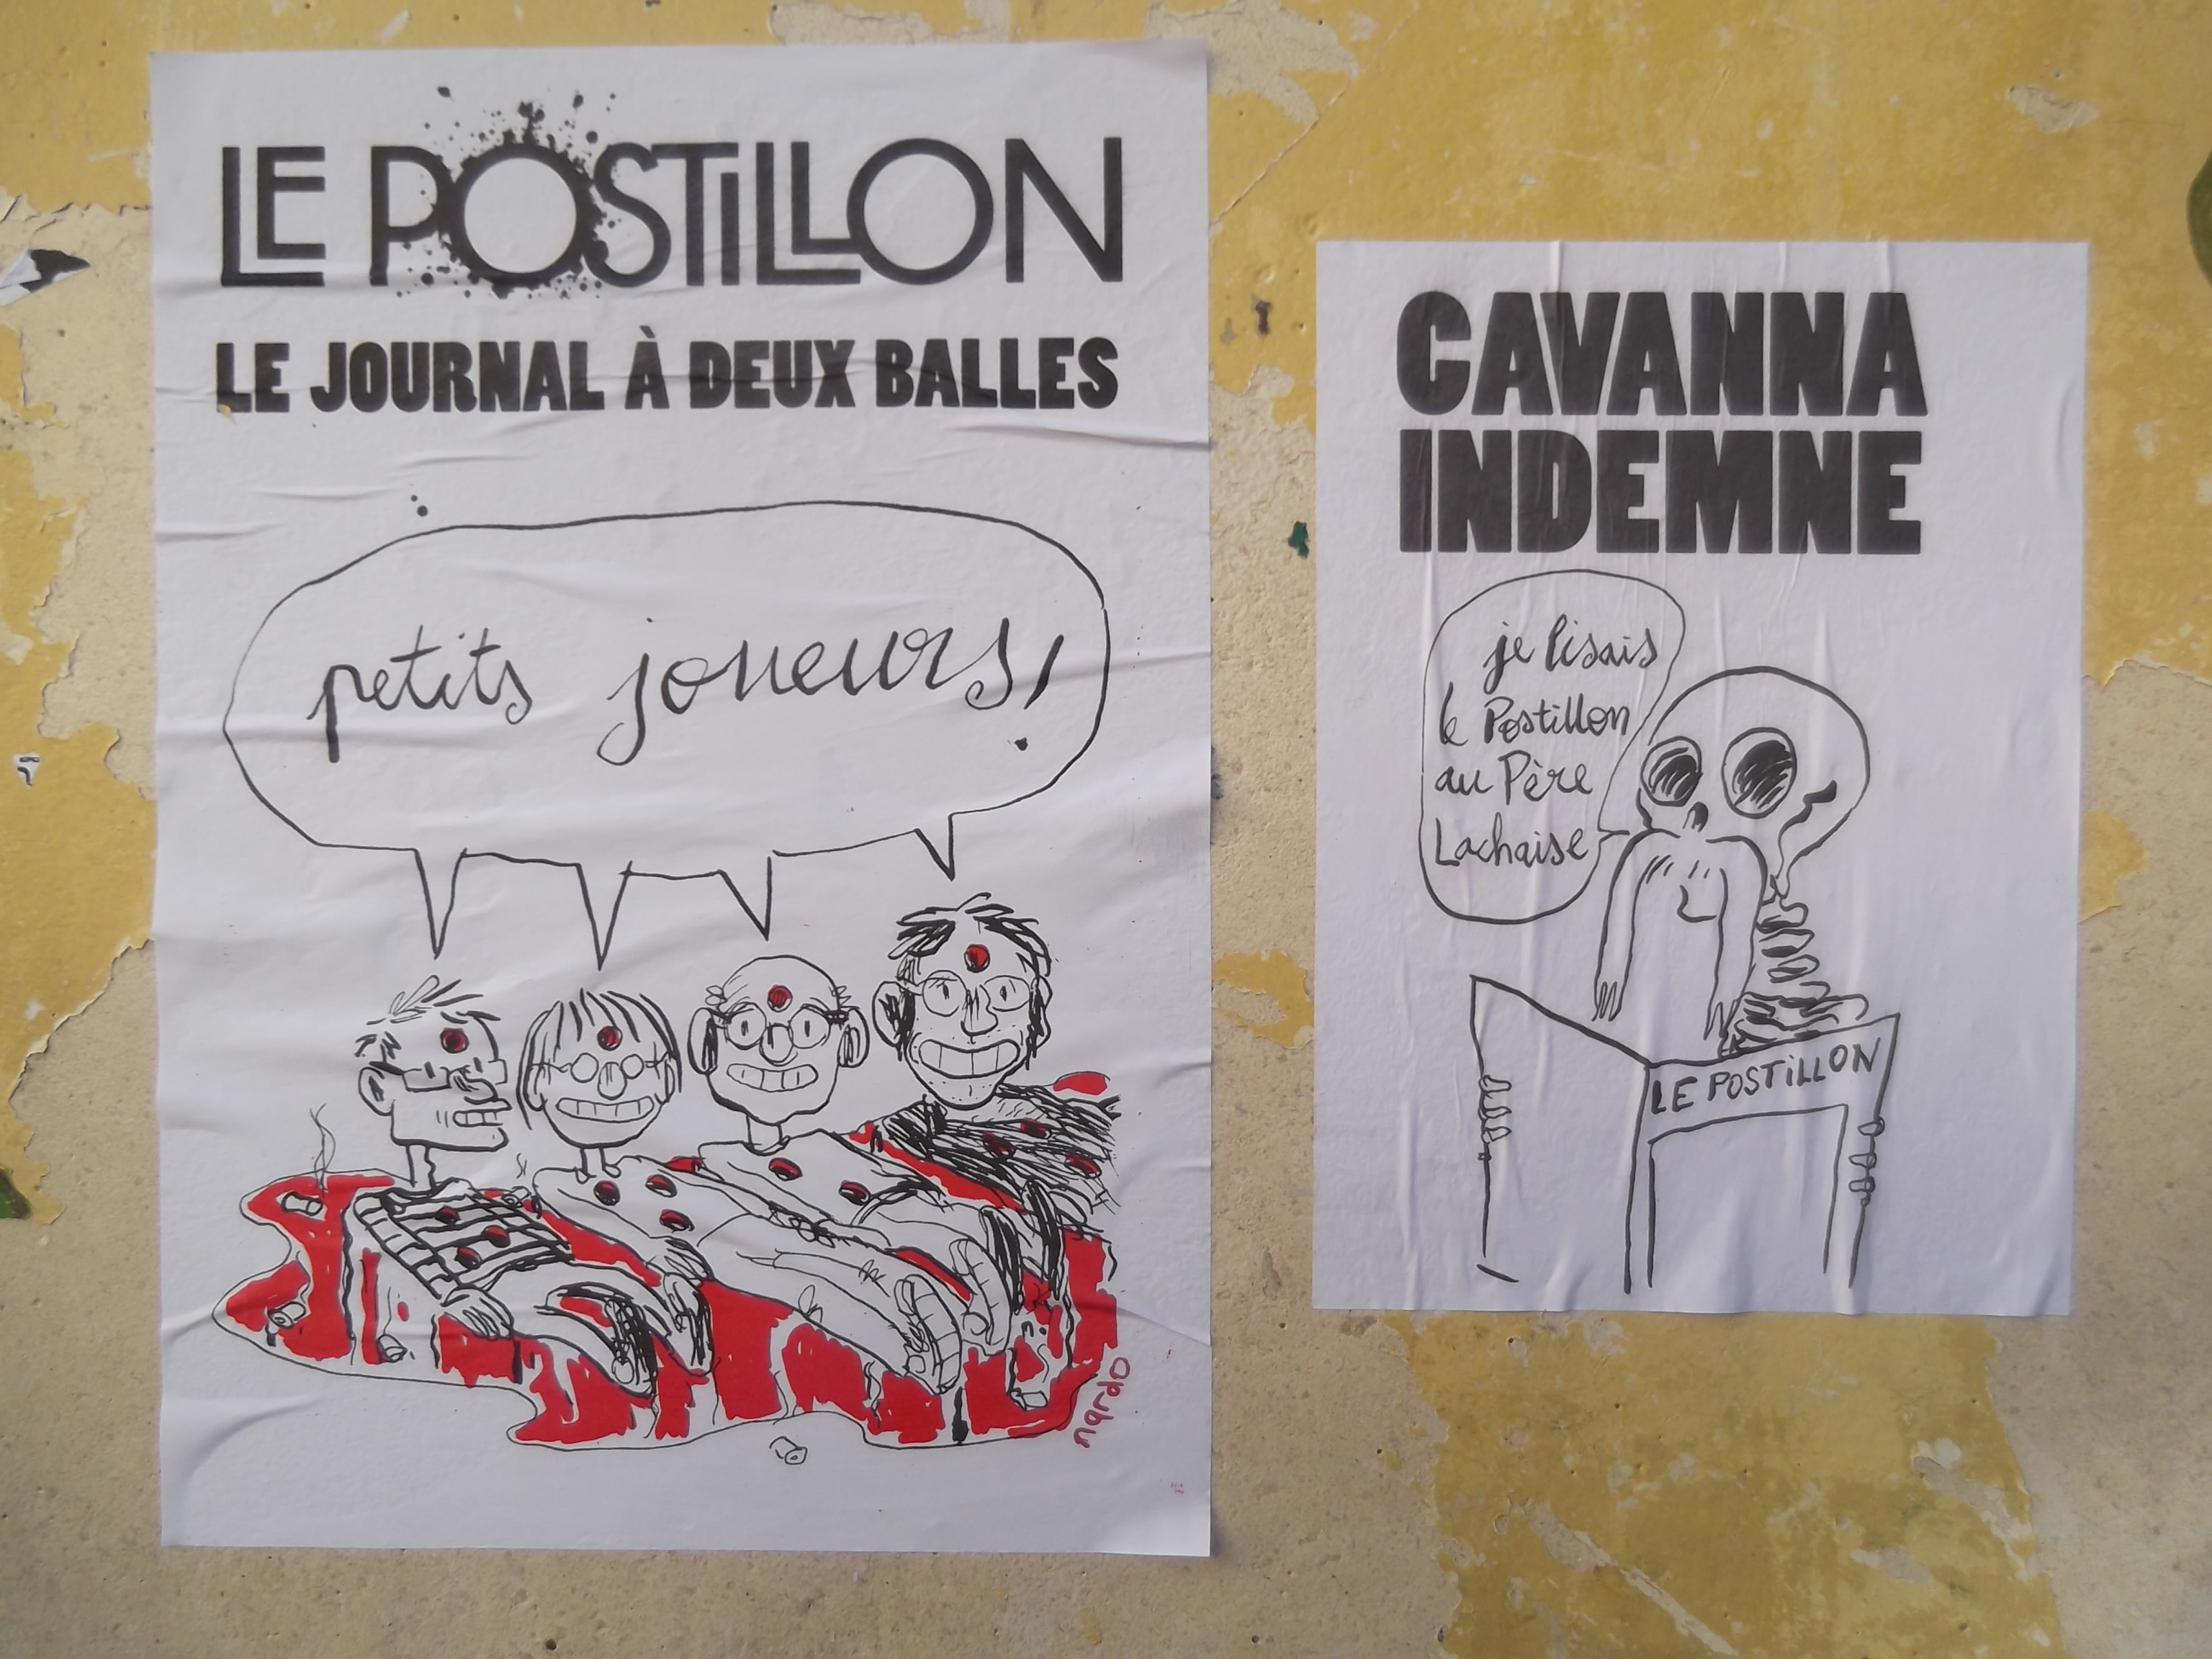 LE POSTiLLON
LE JOURNAL À DEUX BALLES
petits joueurs!
nardo
CAVANNA
INDEMNE
je lisais
le Postillon
au Père
Lachaise
LE POSTiLLON